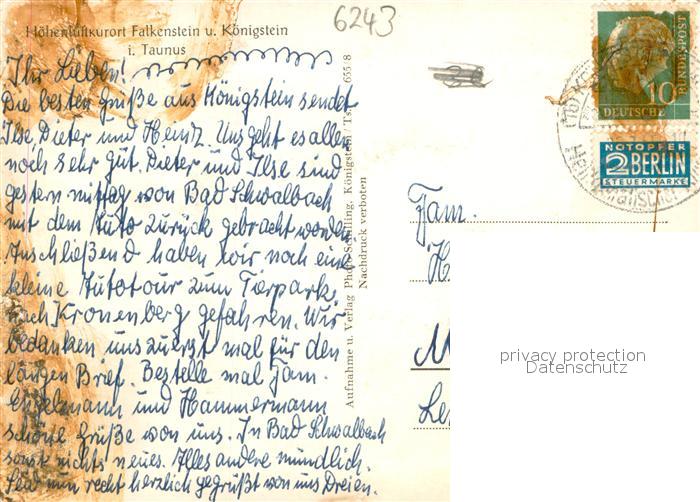 Höhenluftkurort Falkenstein u. Königstein
i. Taunus
6243
Ihr Lieben!
Die besten Grüße aus Königstein sendet
Ilse, Dieter und Heinz. Uns geht es allen
noch sehr gut. Dieter und Ilse sind
gestern mittag von Bad Schwalbach
mit dem Auto zurück gebracht worden.
Anschließend haben wir noch eine
kleine Autotour zum Tierpark
nach Kronenberg gefahren. Wir
bedanken uns zuerst mal für den
langen Brief. Bestelle mal Fam.
Engelmann und Hammermann
schöne Grüße von uns. In Bad Schwalbach
sonst nichts neues. Alles andere mündlich.
Seid nun recht herzlich gegrüßt von uns Dreien.
Aufnahme u. Verlag Photo-Schilling, Königstein i. Ts. 655/8
Nachdruck verboten
10
DEUTSCHE
BUNDESPOST
NOTOPFER
2 BERLIN
STEUERMARKE
Fam.
H
M
Le
privacy protection
Datenschutz